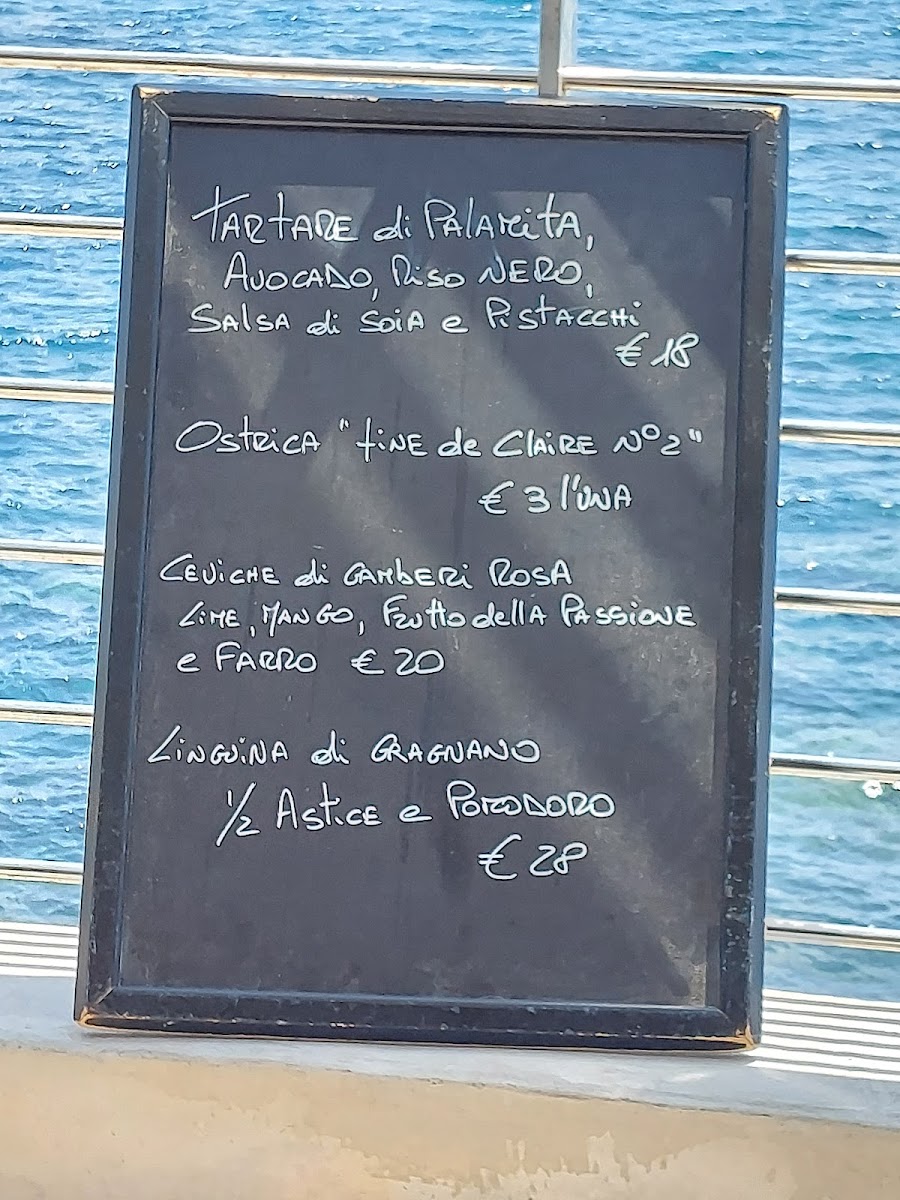 TARTARE di PALAMITA,
AVOCADO, RISO NERO,
SALSA di SOIA e PISTACCHI
€ 18
OSTRICA "FINE de CLAIRE N° 2"
€ 3 l'UNA
CEVICHE di GAMBERI ROSA
LIME, MANGO, FRUTTO della PASSIONE
e FARRO € 20
LINGUINA di GRAGNANO
1/2 ASTICE e POMODORO
€ 28